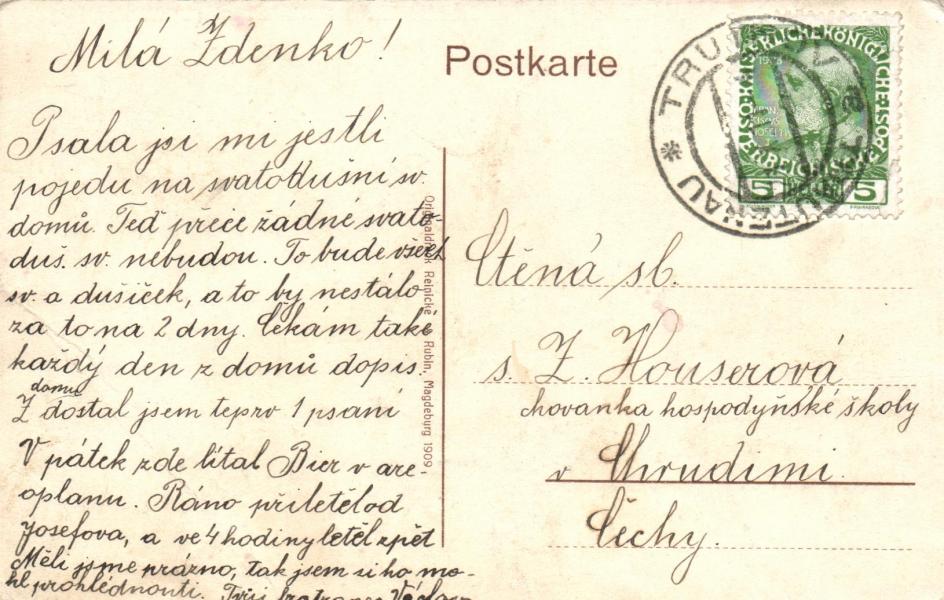 Milá Zdenko!
Psala jsi mi jestli
pojedu na svatodušní sv.
domů. Teď přece žádné svato-
duš. sv. nebudou. To bude všech
sv. a dušiček, a to by nestálo
za to na 2 dny. Čekám také
každý den z domů dopis.
Z domu dostal jsem teprv 1 psaní
V pátek zde lítal Bier v are-
oplanu. Ráno přiletěl od
Josefova, a ve 4 hodiny letěl zpět
Měli jsme prázno, tak jsem si ho mo-
hl prohlédnouti. Tvůj bratranec Václav
Reinicke & Rubin, Magdeburg 1909
Postkarte
KAISERLICHE KÖNIGLICHE
ÖSTERREICHISCHE POST
1908
5 5
* TRU
TENAU
Ctěná sl.
s. Z. Houserová
chovanka hospodyňské školy
v Chrudimi.
Čechy.